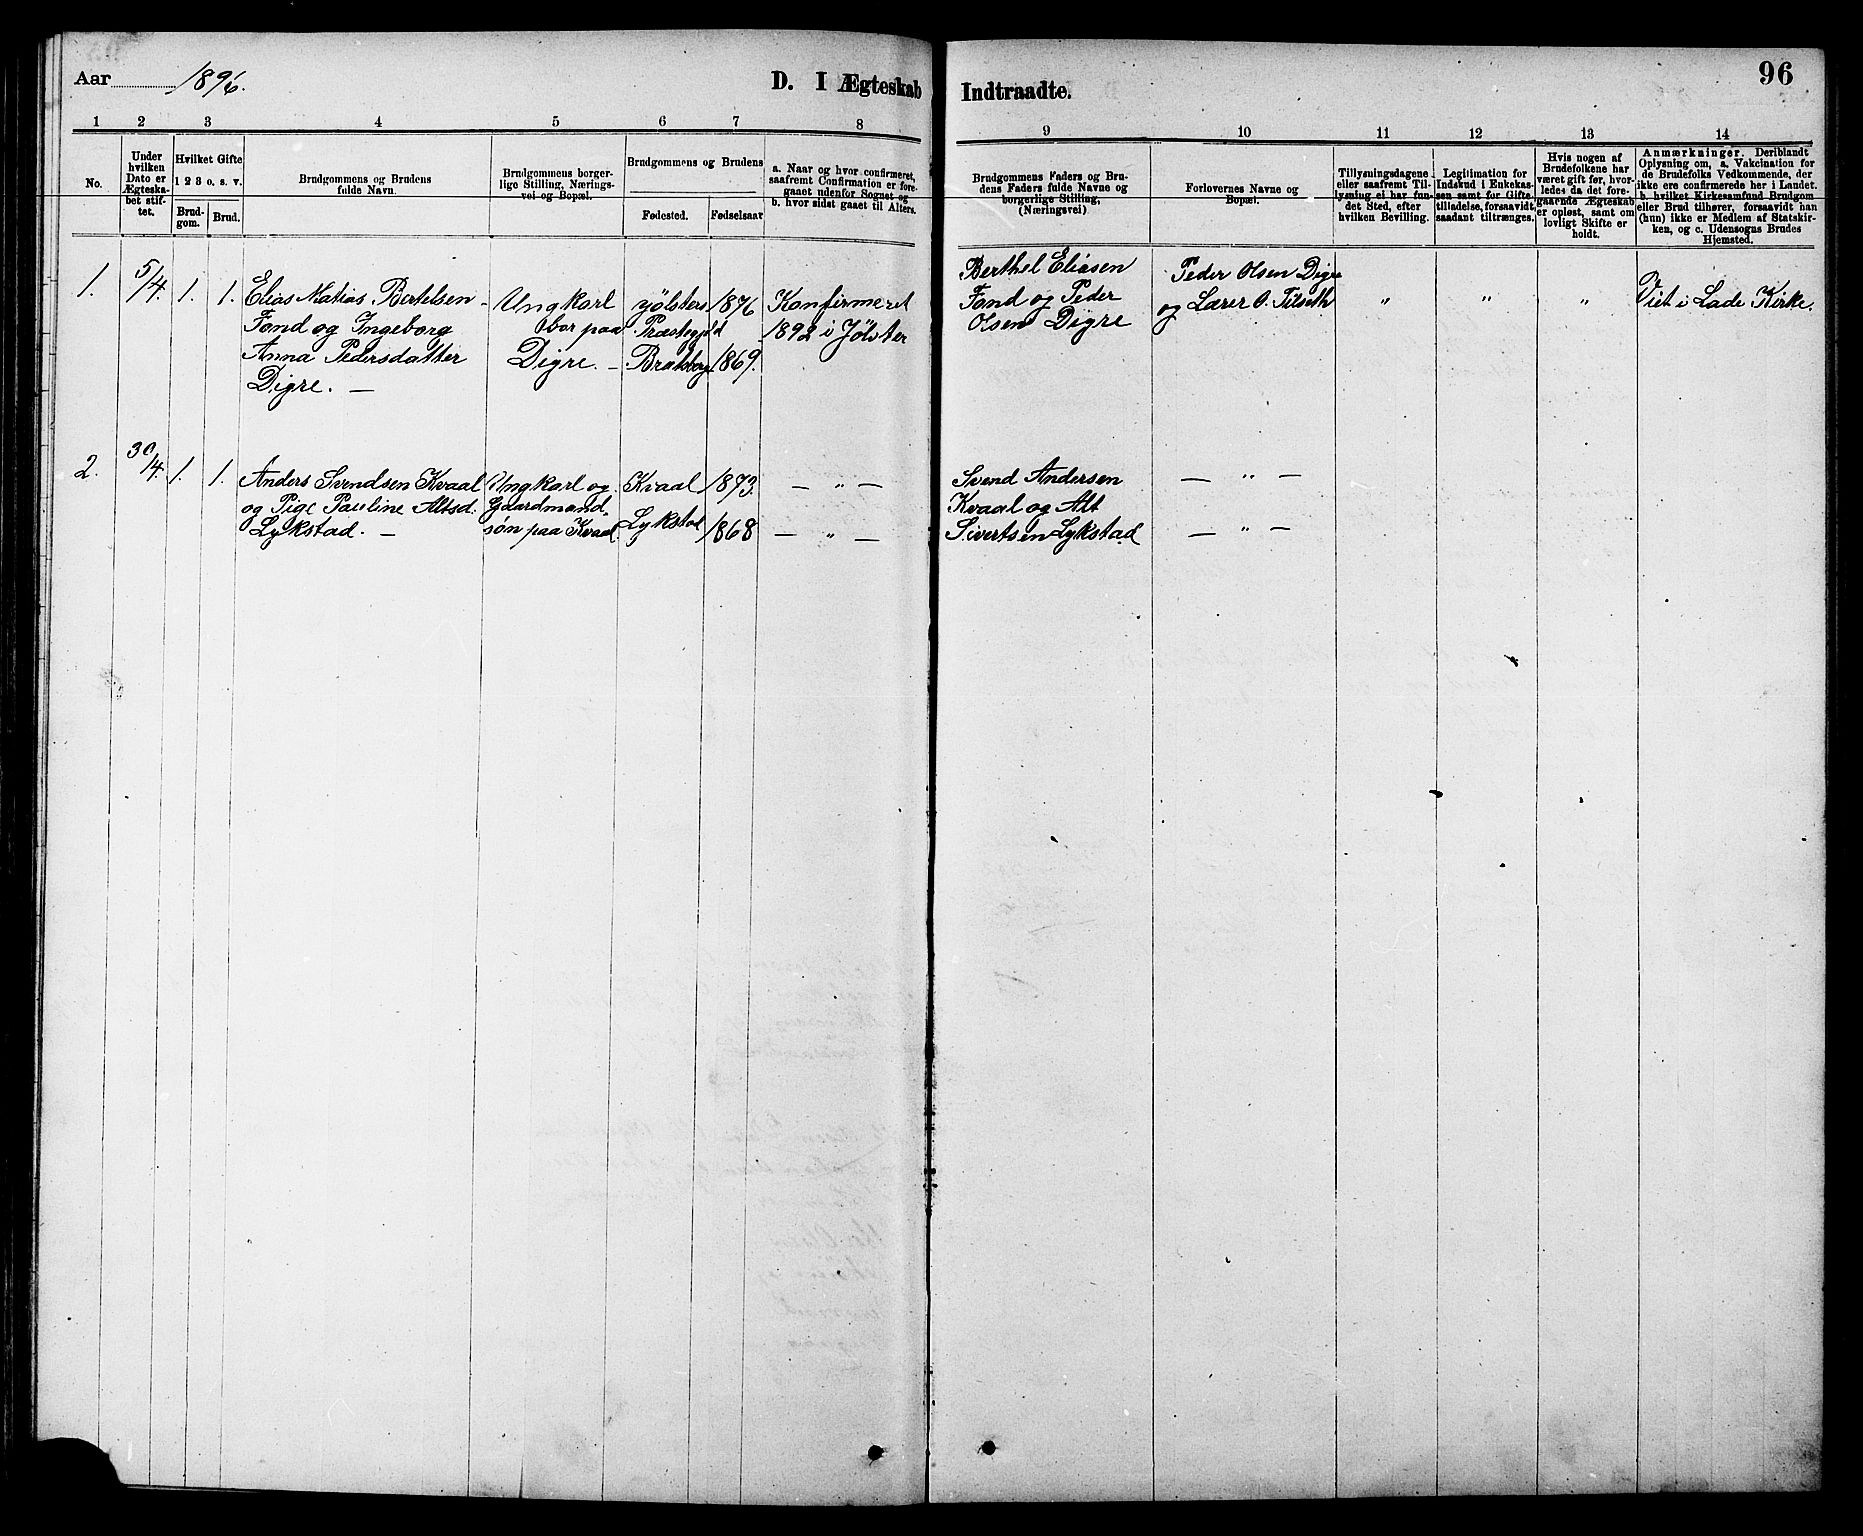 Aar 1896.
D. I Ægteskab Indtraadte.
96
1 2 3 4 5 6 7 8 9 10 11 12 13 14
No.
Under
hvilken
Dato er
Ægteska-
bet stif-
tet.
Hvilket Gifte
1 2 3 o. s. v.
Brud-
gom.
Brud.
Brudgommens og Brudens
fulde Navn.
Brudgommens borger-
lige Stilling, Nærings-
vei og Bopæl.
Brudgommens og Brudens
Fødested.
Fødselsaar
a. Naar og hvor confirmeret,
saafremt Confirmation er fore-
gaaet udenfor Sognet og
b. hvor sidst gaaet til Alters.
Brudgommens Faders og Bru-
dens Faders fulde Navne og
borgerlige Stilling,
(Næringsvei)
Forlovernes Navne og
Bopæl.
Tillysningsdagene
eller saafremt Til-
lysning ei har fun-
det Sted, efter
hvilken Bevilling.
Legitimation for
Indskud i Enkekas-
sen samt for Gifte-
tilladelse, forsaavidt
saadant tiltrænges.
Hvis nogen af
Brudefolkene har
været gift før, hvor-
ledes da det fore-
gaaende Ægteskab
er opløst, samt om
lovligt Skifte er
holdt.
Anmærkninger. Deriblandt
Oplysning om, a. Vakcination for
de Brudefolks Vedkommende, der
ikke ere confirmerede her i Landet.
b. hvilket Kirkesamfund Brudgom
eller Brud tilhører, forsaavidt han
(hun) ikke er Medlem af Statskir-
ken, og c. Udensogns Brudes
Hjemsted.
1. 5/4. 1. 1.
Elias Matias Bertelsen
Fond og Ingeborg
Anna Pedersdatter
Digre. —
Ungkarl
bor paa
Digre. —
Jølsters
Præstegjeld
Bratsberg
1876
1869.
Konfirmeret
1892 i Jølster
Berthel Eliasen
Fond og Peder
Olsen Digre
Peder Olsen Digre
og Lærer O. Tilseth
" " "
Viet i Lade Kirke.
2. 30/4. 1. 1.
Anders Svendsen Kvaal
og Pige Pauline Altsd.
Lykstad. —
Ungkarl og
Gaardmand-
søn paa Kvaal.
Kvaal
Lykstad
1873.
1868
— " —
— " —
Svend Andersen
Kvaal og Alt
Sivertsen Lykstad
— " —
— " —